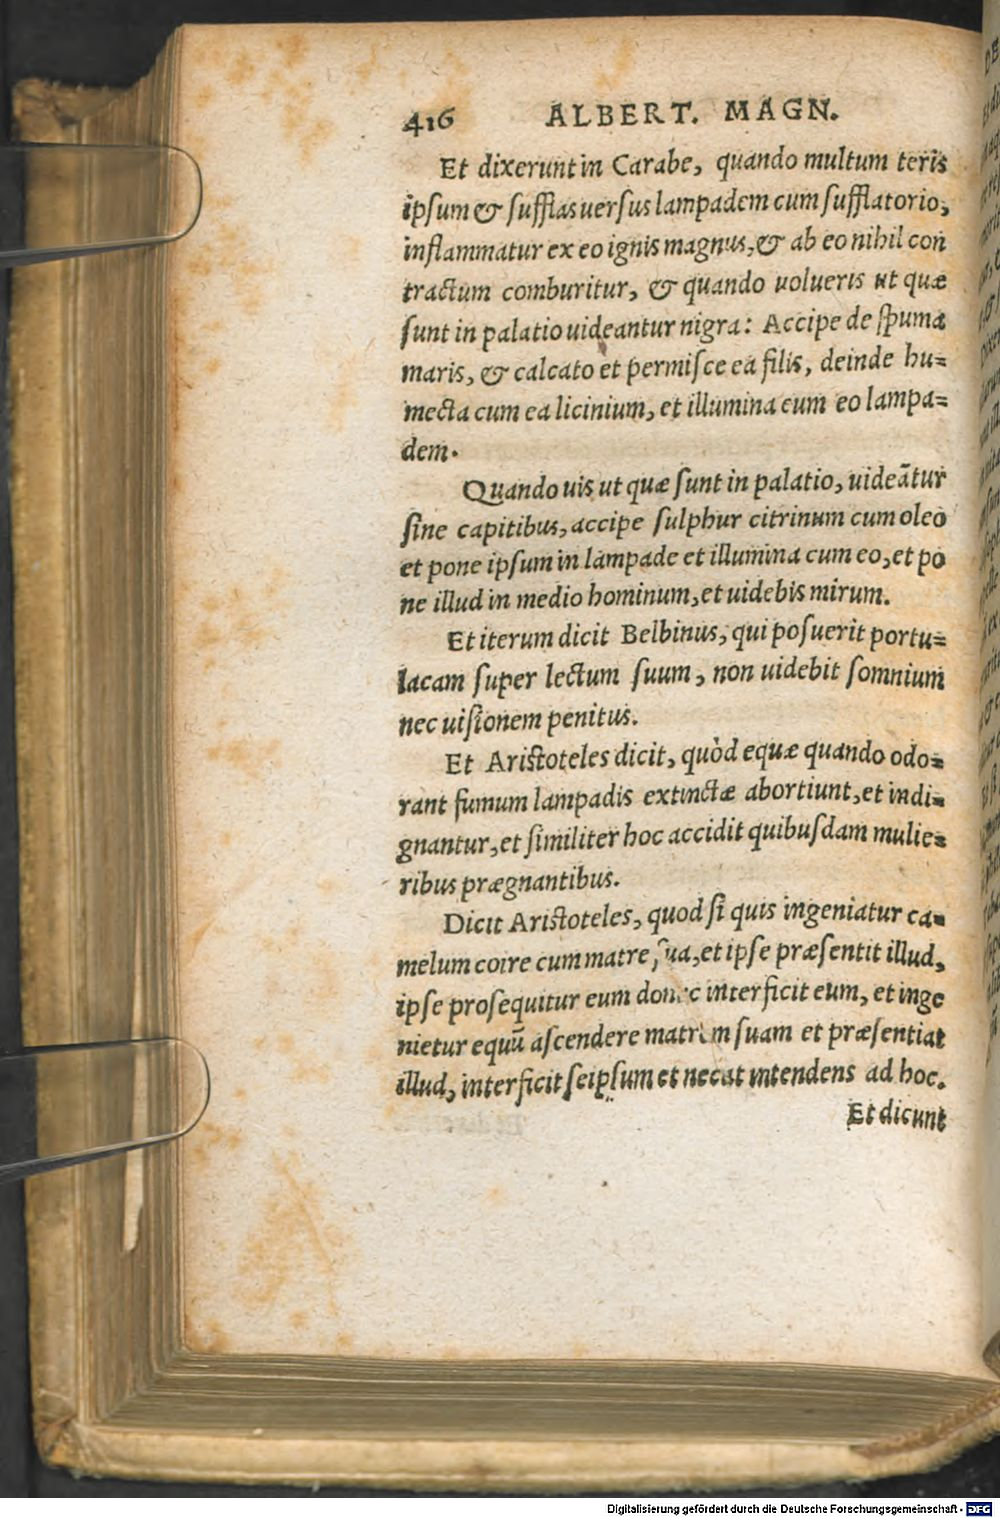 416 ALBERT. MAGN.
Et dixerunt in Carabe, quando multum teris
ipsum & sufflas uersus lampadem cum sufflatorio,
inflammatur ex eo ignis magnus, & ab eo nihil con
tractum comburitur, & quando uolueris ut quæ
sunt in palatio uideantur nigra: Accipe de spuma
maris, & calcato et permisce ea filis, deinde hu=
mecta cum ea licinium, et illumina cum eo lampa=
dem.
Quando uis ut quæ sunt in palatio, uideãtur
sine capitibus, accipe sulphur citrinum cum oleo
et pone ipsum in lampade et illumina cum eo, et po
ne illud in medio hominum, et uidebis mirum.
Et iterum dicit Belbinus, qui posuerit portu=
lacam super lectum suum, non uidebit somnium
nec uisionem penitus.
Et Aristoteles dicit, quòd equæ quando odo=
rant fumum lampadis extinctæ abortiunt, et indi=
gnantur, et similiter hoc accidit quibusdam mulie=
ribus prægnantibus.
Dicit Aristoteles, quod si quis ingeniatur ca=
melum coire cum matre sua, et ipse præsentit illud,
ipse prosequitur eum donec interficit eum, et inge
nietur equũ ascendere matrem suam et præsentiat
illud, interficit seipsum et necat intendens ad hoc.
Et dicunt
Digitalisierung gefördert durch die Deutsche Forschungsgemeinschaft - DFG